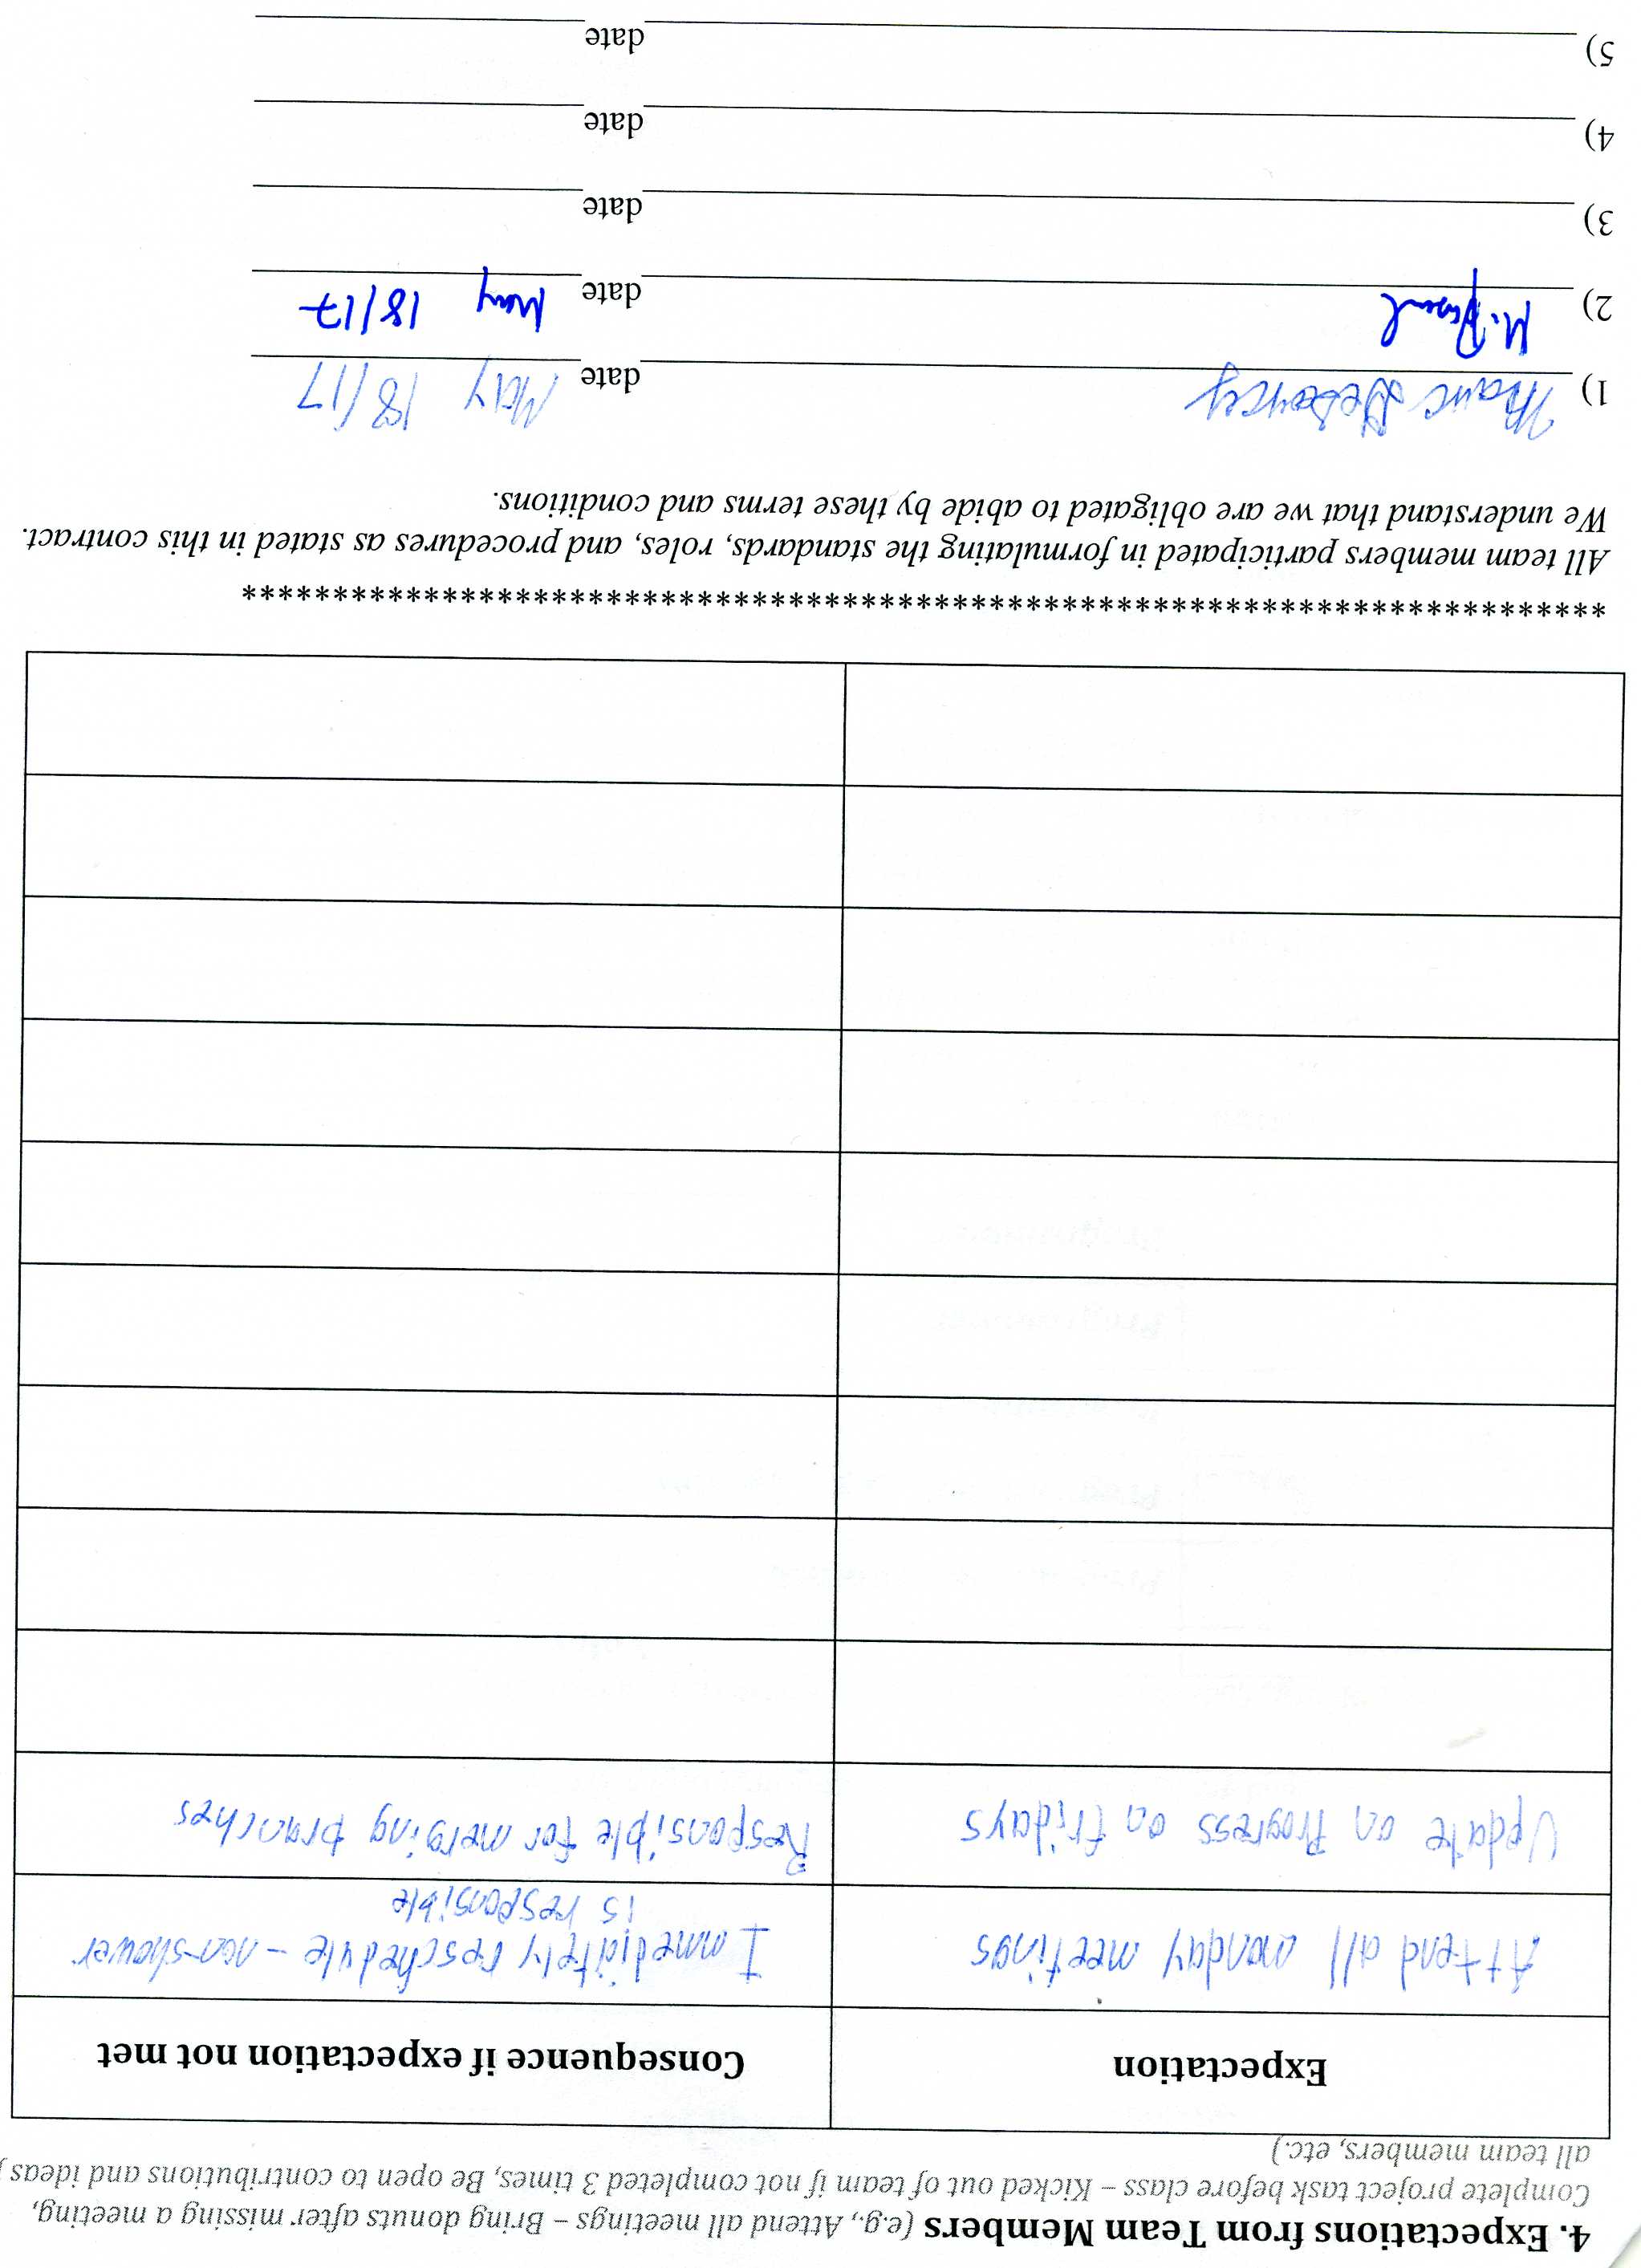 4. Expectations from Team Members (e.g., Attend all meetings – Bring donuts after missing a meeting,
Complete project task before class – Kicked out of team if not completed 3 times, Be open to contributions and ideas
all team members, etc.)
Expectation
Consequence if expectation not met
Attend all monday meetings
Immediately reschedule - non-shower
is responsible
Update on Progress on fridays
Responsible for merging branches
**************************************************************************
All team members participated in formulating the standards, roles, and procedures as stated in this contract.
We understand that we are obligated to abide by these terms and conditions.
1) Marc DeSorcy date May 18/17
2) M. date May 18/17
3) date
4) date
5) date